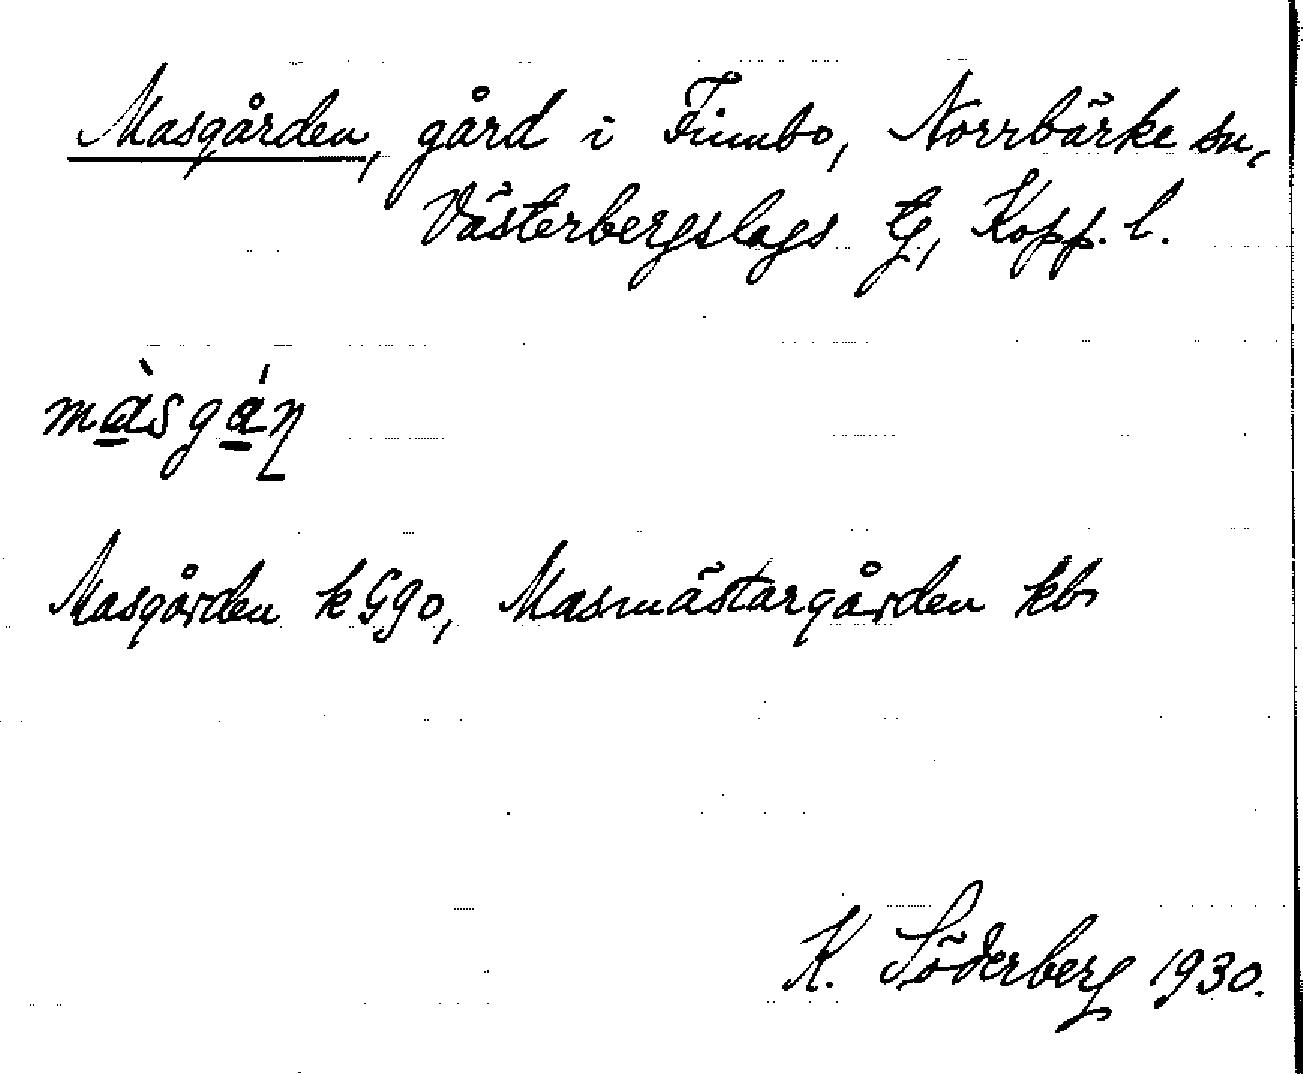 Masgården, gård i Finnbo, Norrbärke sn,
Västerbergslags tg, Kopp. l.
màsgán
Masgården k Ggo, Masmästargården kb
K. Söderberg 1930.